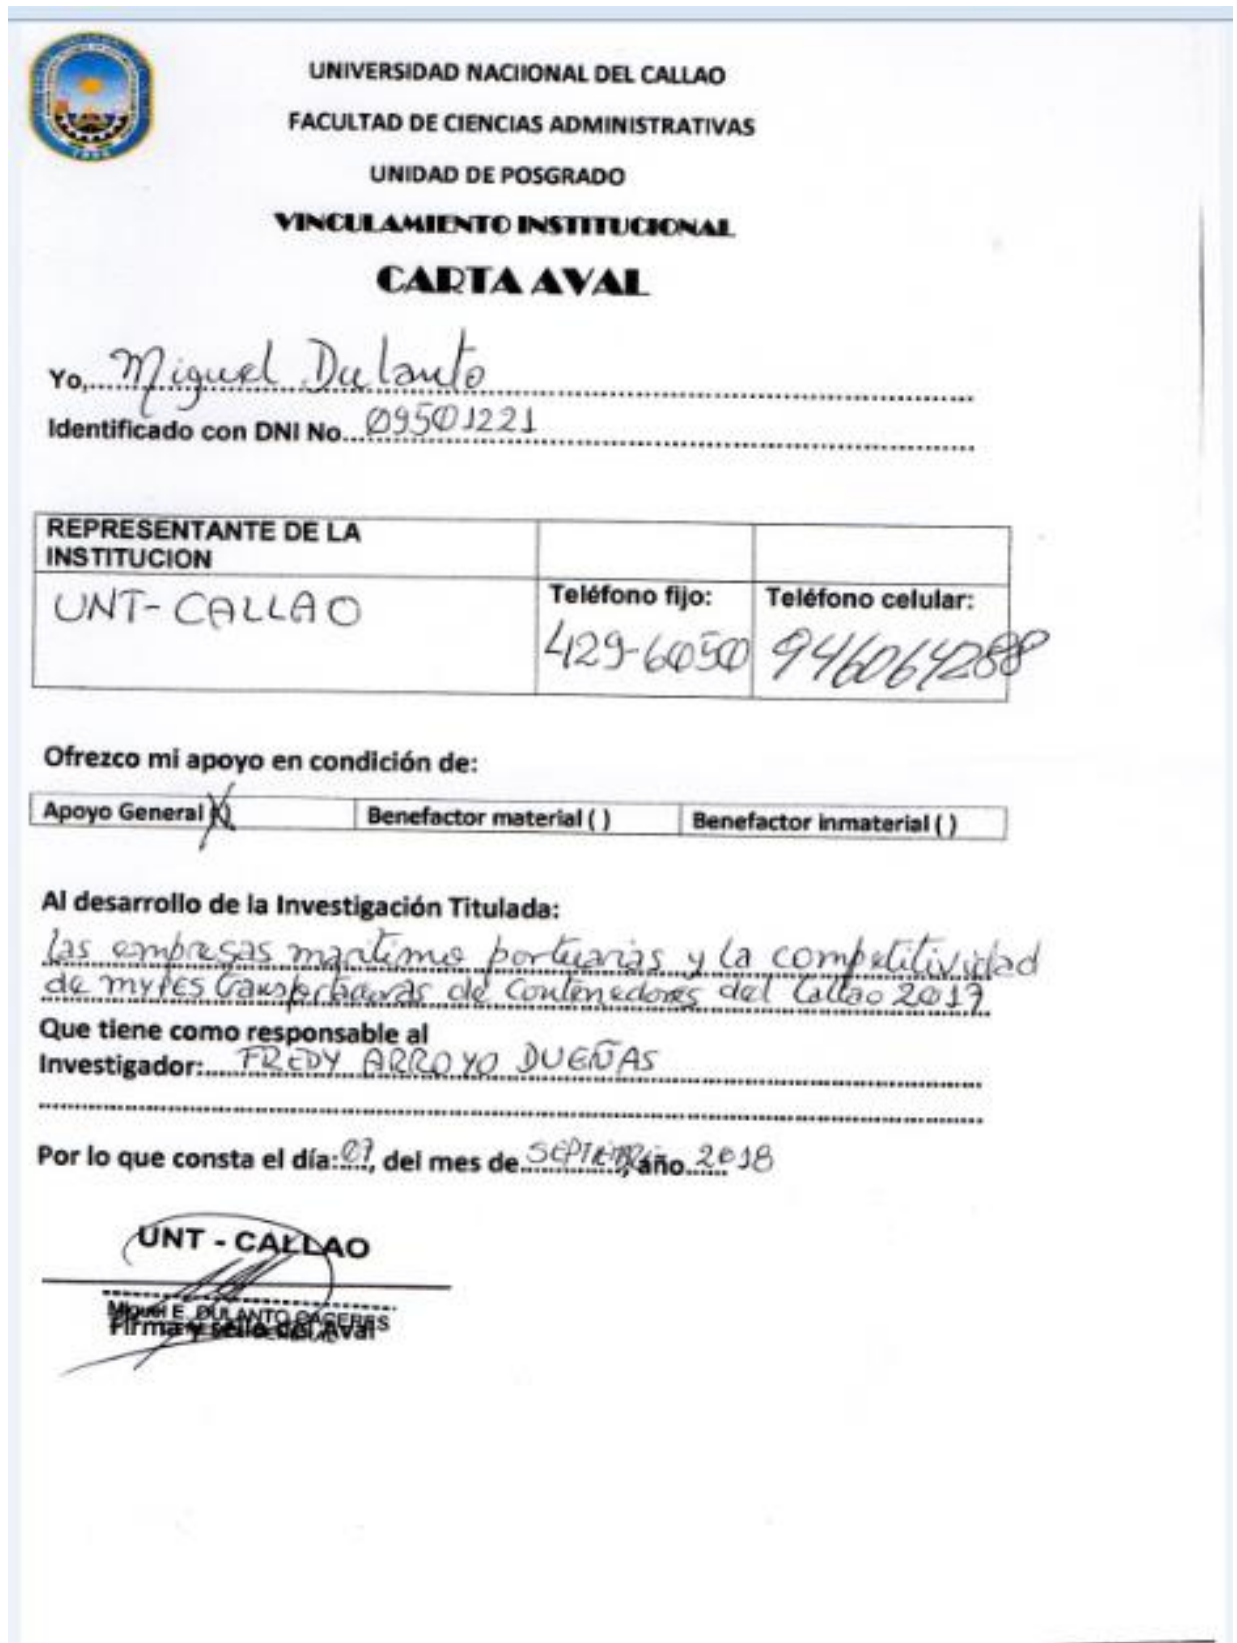 UNIVERSIDAD NACIIONAL DEL CALLAO
FACULTAD DE CIENCIAS ADMINISTRATIVAS
UNIDAD DE POSGRADO
VINCULAMIENTO INSTITUCIONAL
CARTA AVAL
Yo, Miguel Dulanto
Identificado con DNI No. 09501221
REPRESENTANTE DE LA
INSTITUCION
UNT-CALLAO
Teléfono fijo: Teléfono celular:
429-6050 946064288
Ofrezco mi apoyo en condición de:
Apoyo General (X) Benefactor material ( ) Benefactor inmaterial ( )
Al desarrollo de la Investigación Titulada:
las empresas maritimo portuarias y la competitividad
de mypes transportadoras de Contenedores del Callao 2017
Que tiene como responsable al
Investigador: FREDY ARROYO DUEÑAS
Por lo que consta el día: 07, del mes de , año 2018
UNT - CALLAO
Miguel E. DULANTO CACERES
Firma y sello del Aval